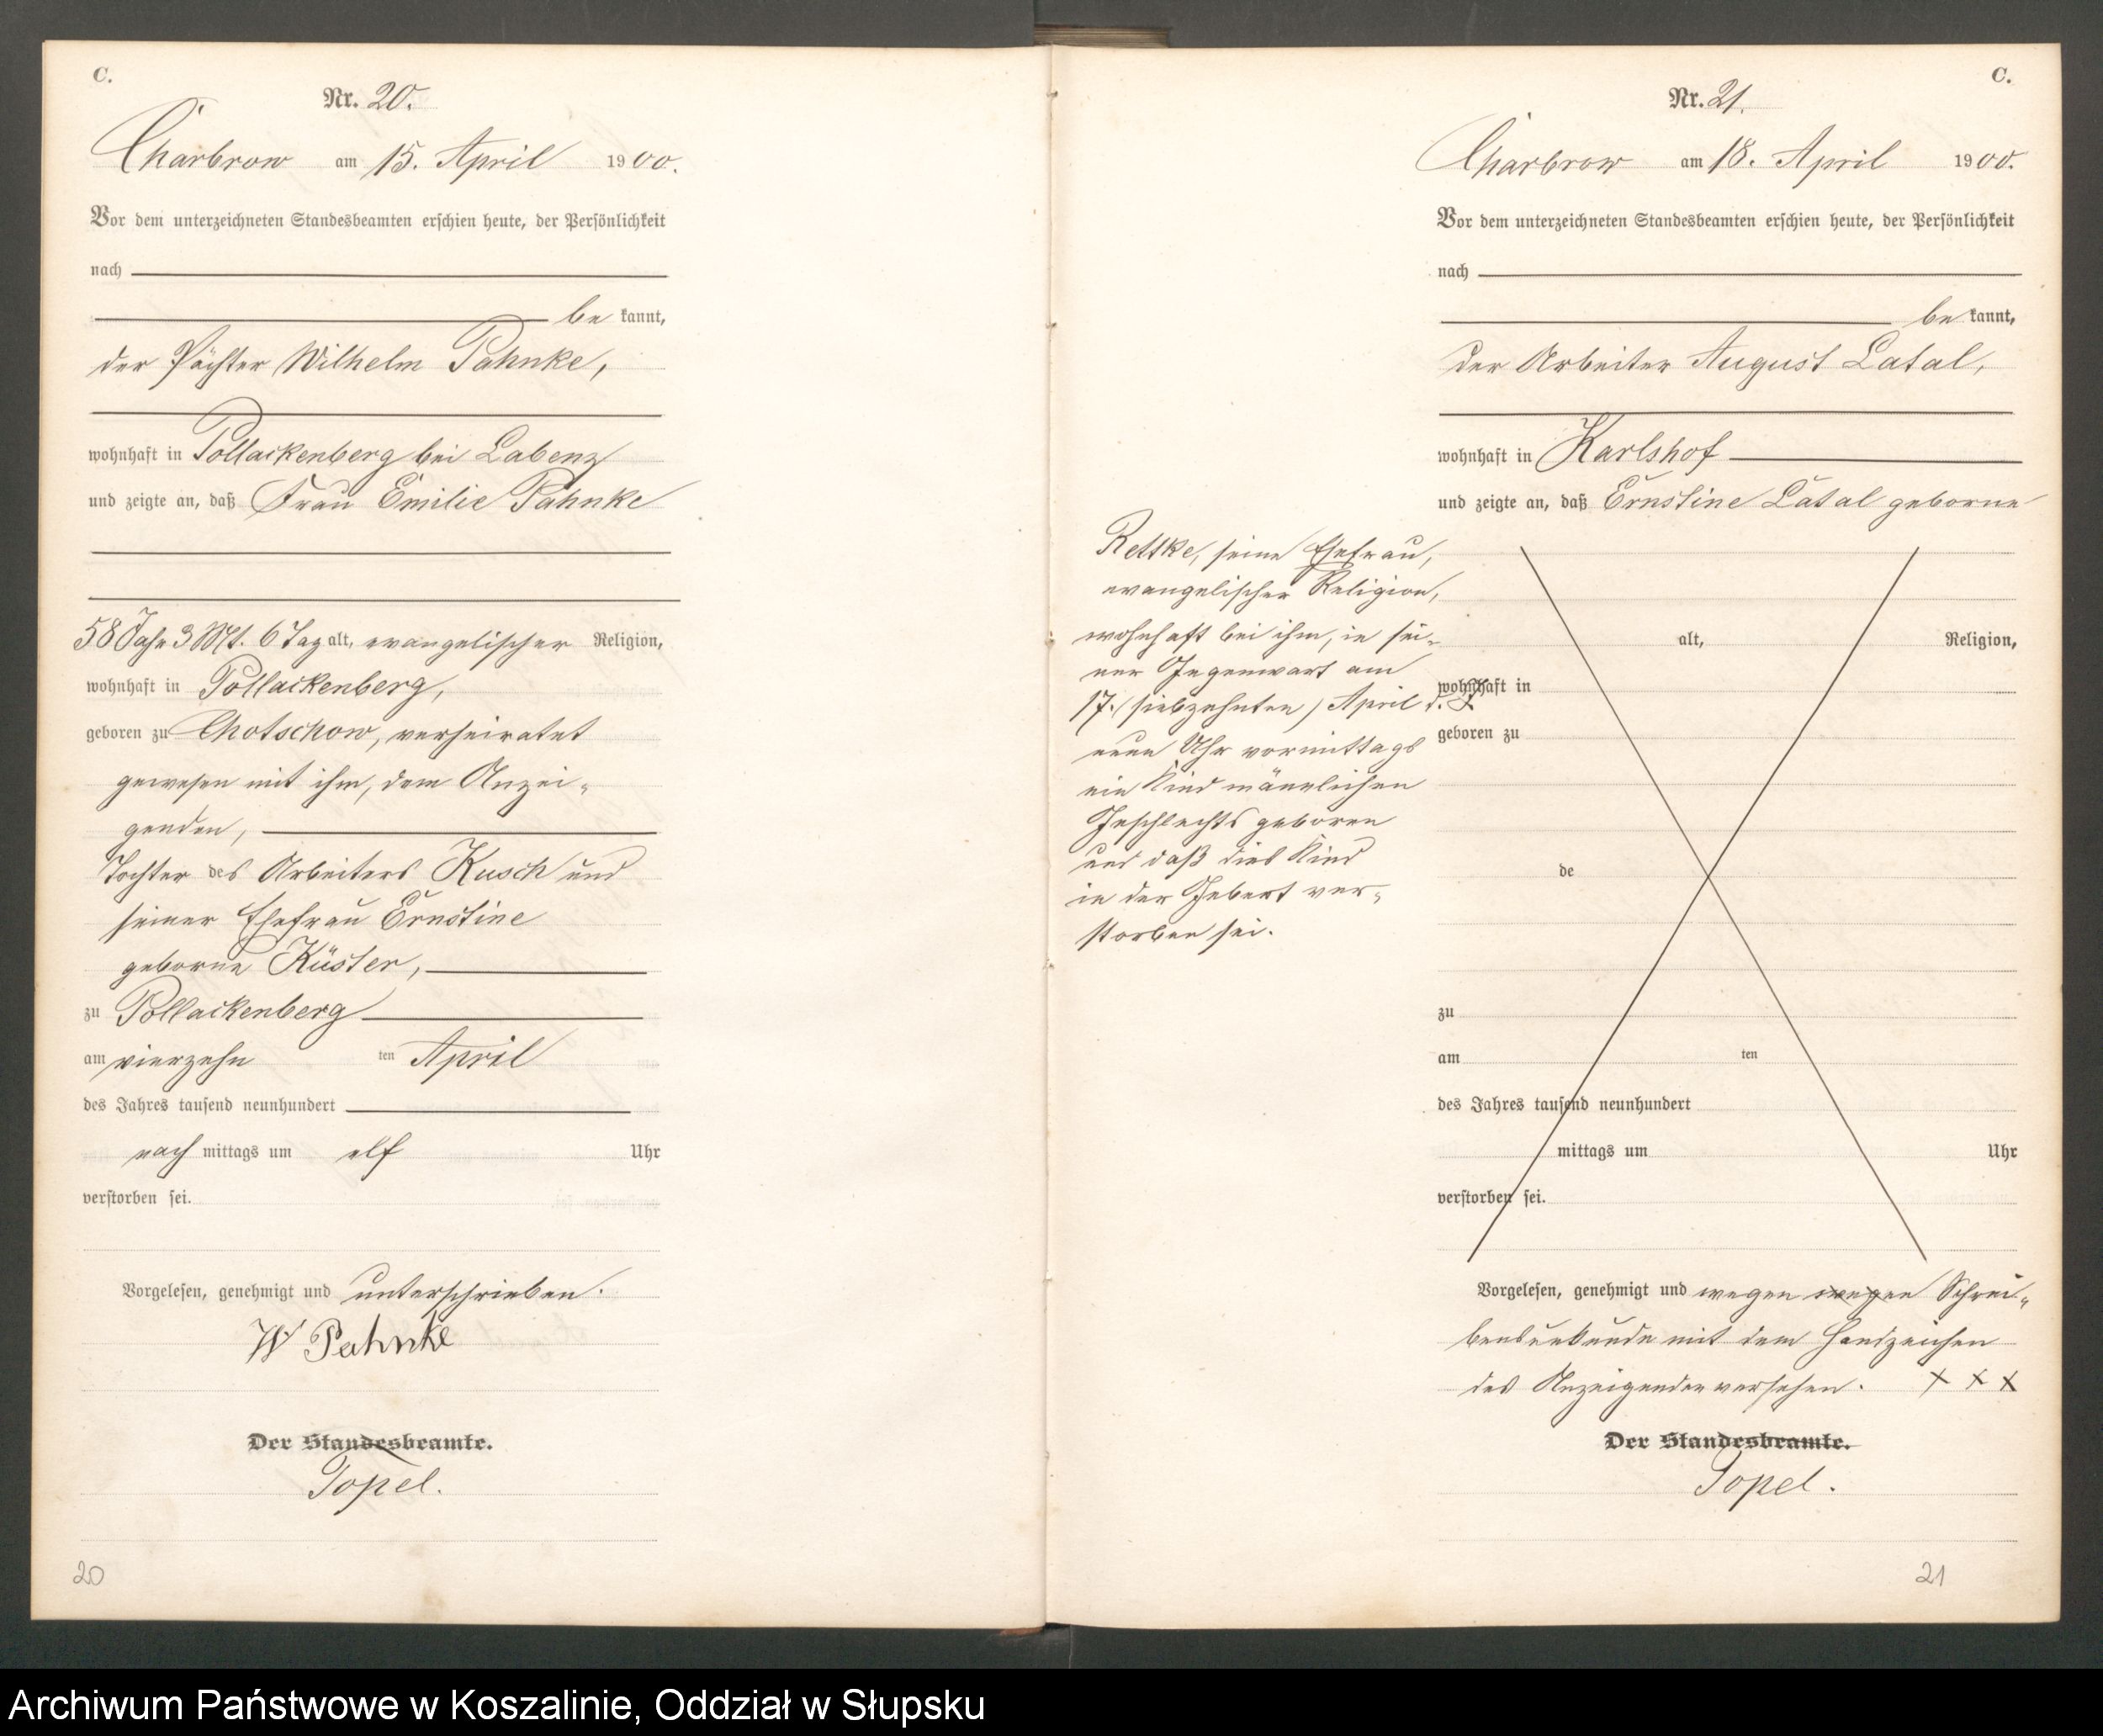 C.
Nr. 20.
Charbrow am 15. April 1900.
Vor dem unterzeichneten Standesbeamten erschien heute, der Persönlichkeit
nach
be kannt,
der Pächter Wilhelm Pahnke,
wohnhaft in Pollackenberg bei Labenz
und zeigte an, daß Frau Emilie Pahnke
58 Jahr 3 Mt. 6 Tag alt, evangelischer Religion,
wohnhaft in Pollackenberg,
geboren zu Chotschow, verheiratet
gewesen mit ihm, dem Anzei-
genden,
Tochter des Arbeiters Kusch und
seiner Ehefrau Ernstine
geborne Küster,
zu Pollackenberg
am vierzehn ten April
des Jahres tausend neunhundert
nach mittags um elf Uhr
verstorben sei.
Vorgelesen, genehmigt und unterschrieben.
W Pahnke
Der Standesbeamte.
Topel.
20
C.
Nr. 21.
Charbrow am 18. April 1900.
Vor dem unterzeichneten Standesbeamten erschien heute, der Persönlichkeit
nach
be kannt,
der Arbeiter August Latal,
wohnhaft in Karlshof
und zeigte an, daß Ernstine Latal geborne
Rettke, seine Ehefrau,
evangelischer Religion,
wohnhaft bei ihm, in sei-
ner Gegenwart am
17. (siebzehnten) April d. J.
neun Uhr vormittags
ein Kind männlichen
Geschlechts geboren
und daß dies Kind
in der Geburt ver-
storben sei.
alt, Religion,
wohnhaft in
geboren zu
de
zu
am ten
des Jahres tausend neunhundert
mittags um Uhr
verstorben sei.
Vorgelesen, genehmigt und wegen wegen Schrei-
bensunkunde mit dem Handzeichen
des Anzeigenden versehen. X X X
Der Standesbeamte.
Topel.
21
Archiwum Państwowe w Koszalinie, Oddział w Słupsku